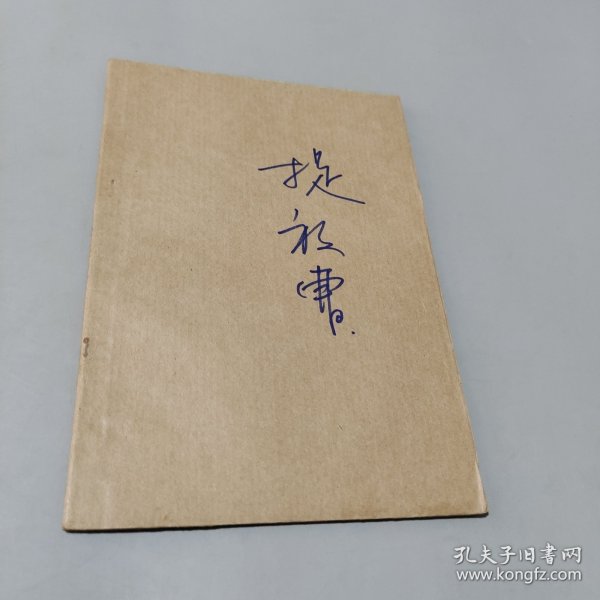 提放曹
孔夫子旧書网
www.kongfz.com